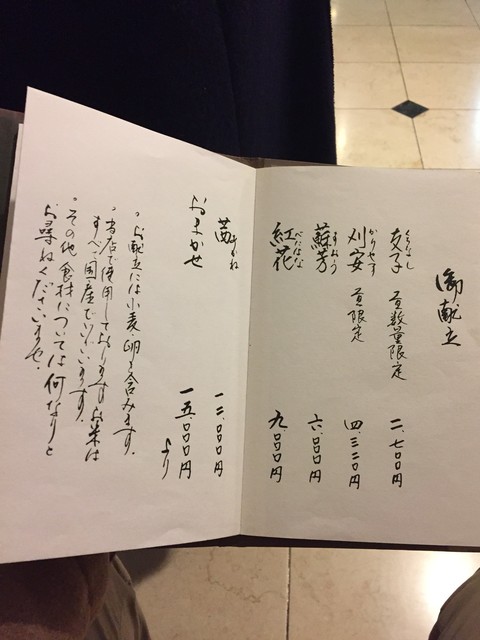 御献立
支子 くちなし 昼数量限定 二、七〇〇円
刈安 かりやす 昼限定 四、三二〇円
蘇芳 すおう 六、〇〇〇円
紅花 べにはな 九、〇〇〇円
茜 あかね 一二、〇〇〇円
おまかせ 一五、〇〇〇円より
。お献立には小麦・卵を含みます。
。当店で使用しておりますお米は
すべて国産でございます。
。その他食材については何なりと
お尋ねくださいませ。